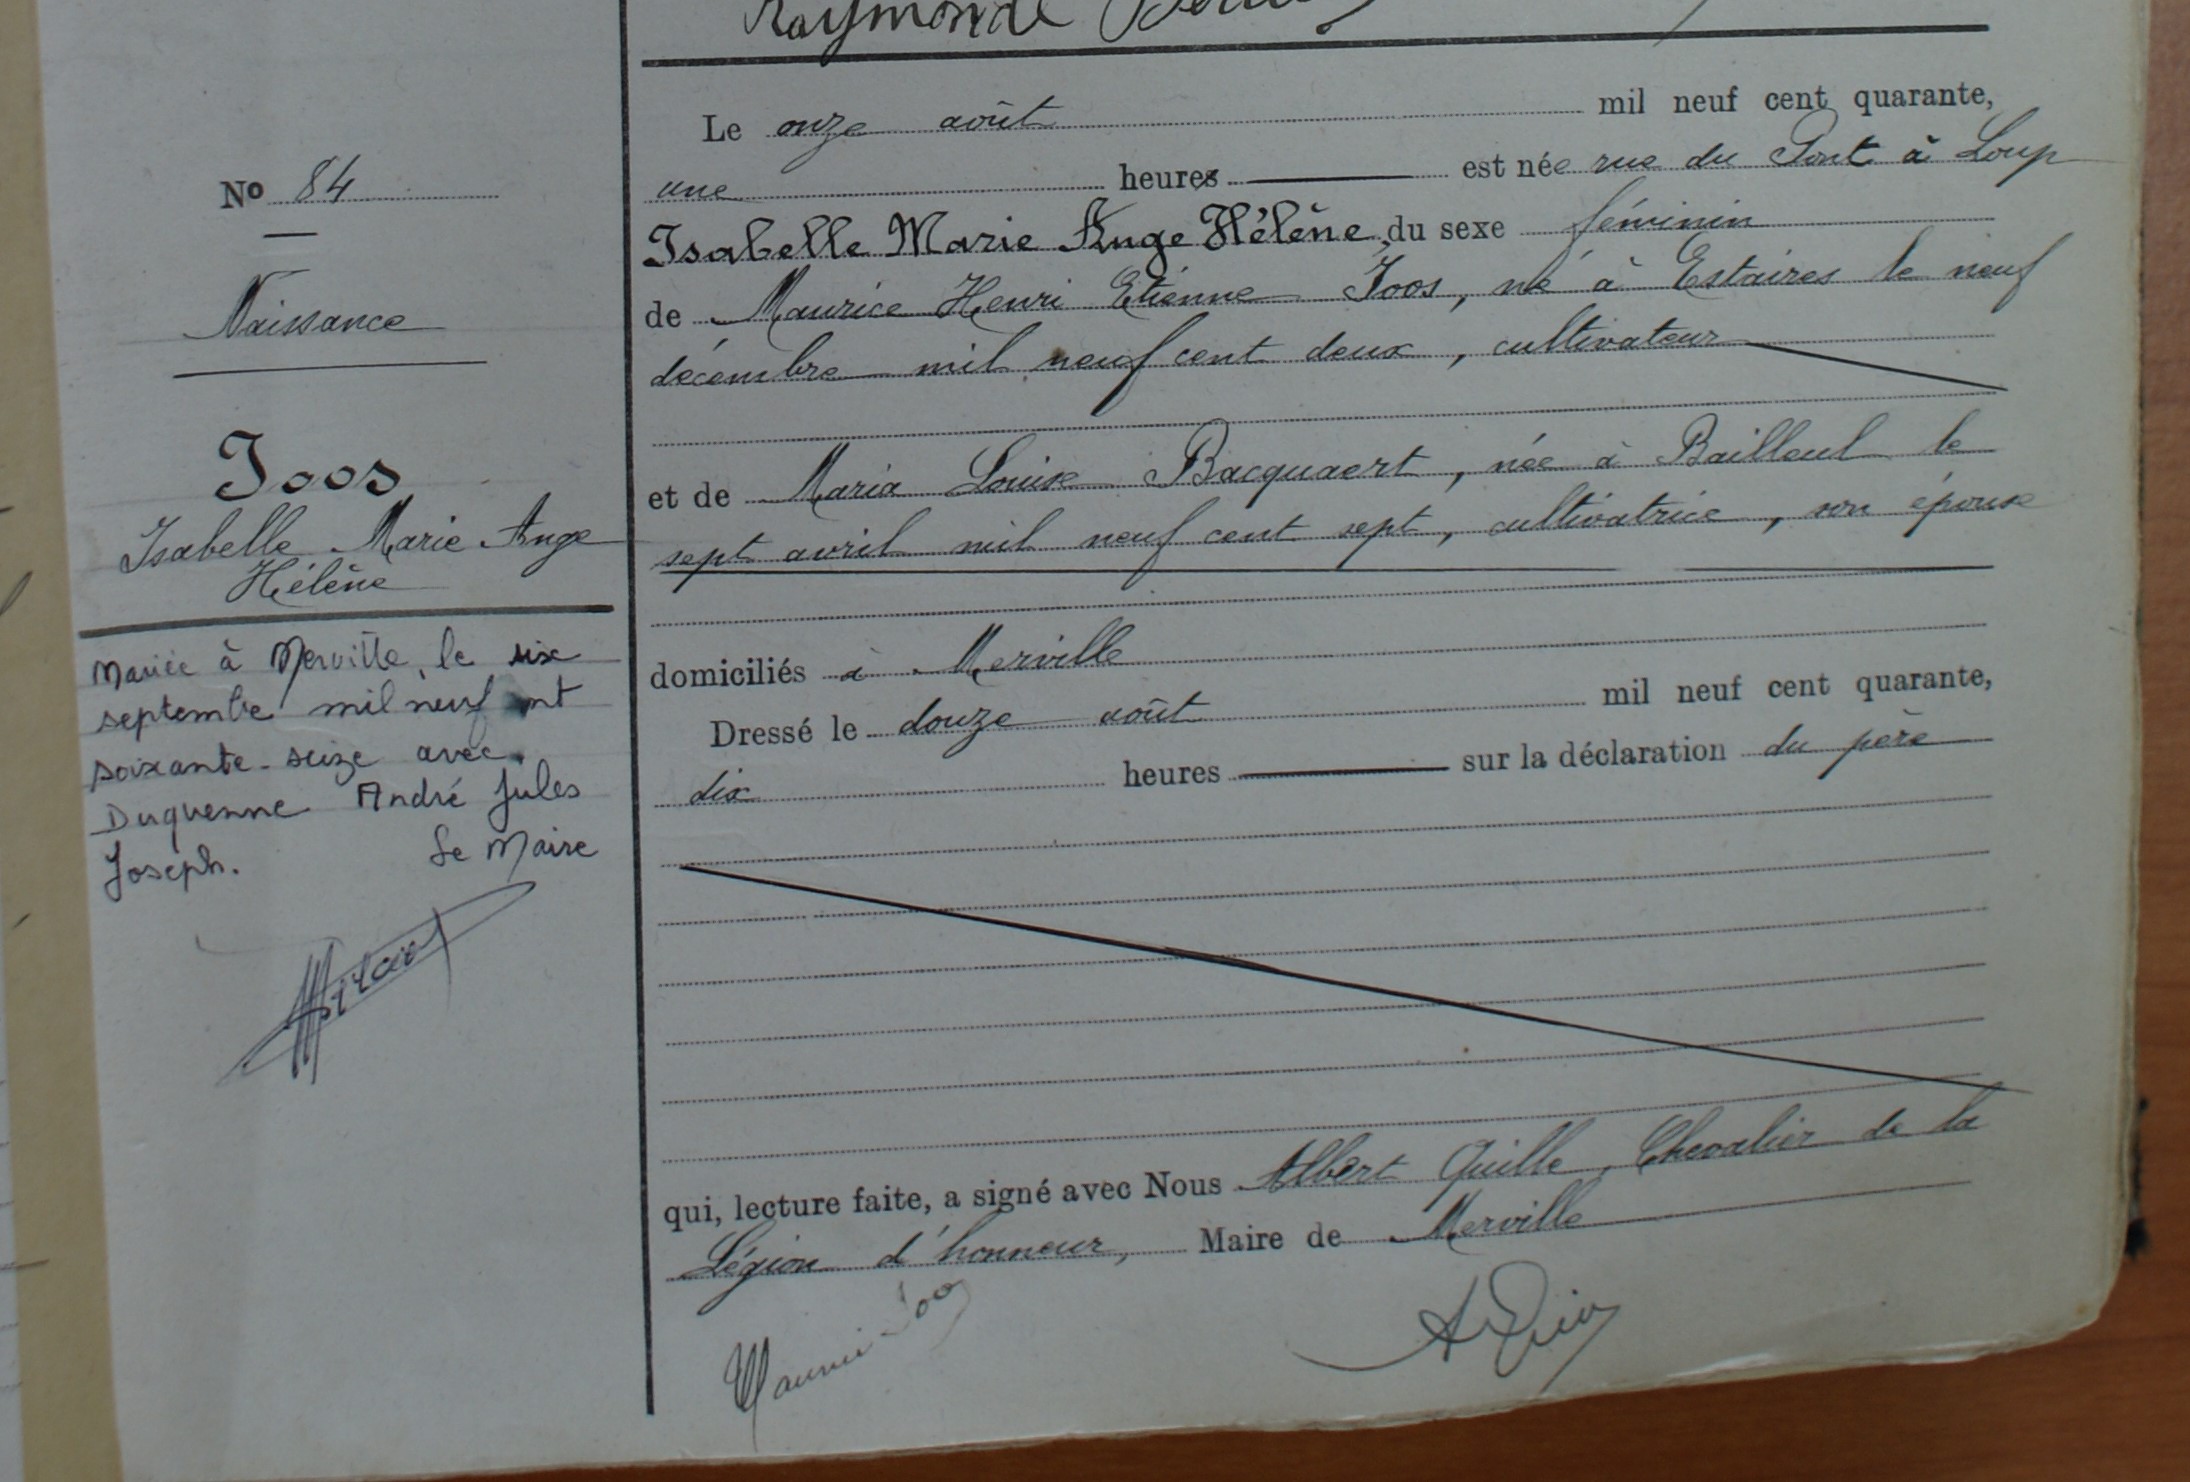 Raymonde
N° 84
Naissance
Joos
Isabelle Marie Ange
Hélène
Mariée à Merville, le six
septembre mil neuf nt
soixante-seize avec
Duquenne André Jules
Joseph. Le Maire
Le onze août mil neuf cent quarante,
une heures est née rue du Pont à Loup
Isabelle Marie Ange Hélène, du sexe féminin
de Maurice Henri Etienne Joos, né à Estaires le neuf
décembre mil neuf cent deux, cultivateur
et de Maria Louise Bacquaert, née à Bailleul le
sept avril mil neuf cent sept, cultivatrice, son épouse
domiciliés à Merville
Dressé le douze août mil neuf cent quarante,
dix heures sur la déclaration du père
qui, lecture faite, a signé avec Nous Albert Quille, Chevalier de la
Légion d'honneur, Maire de Merville
Maurice Joos